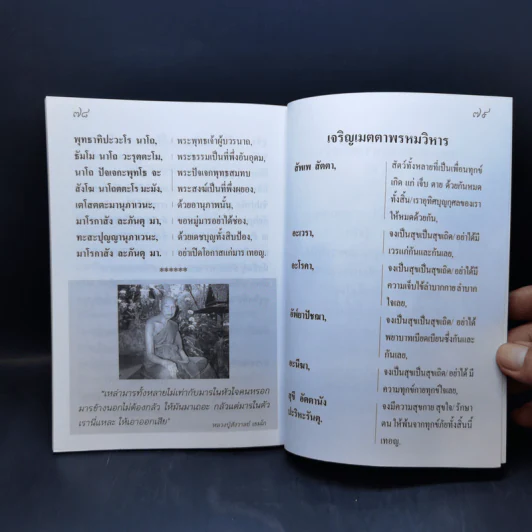 ๗๘
พุทธาทิปะวะโร นาโถ, พระพุทธเจ้าผู้บวรนาถ,
ธัมโม นาโถ วะรุตตะโม, พระธรรมเป็นที่พึ่งอันอุดม,
นาโถ ปัจเจกะพุทโธ จะ พระปัจเจกพุทธสมทบ
สังโฆ นาโถตตะโร มะมัง, พระสงฆ์เป็นที่พึ่งผยอง,
เตโสตตะมานุภาเวนะ, ด้วยอานุภาพนั้น,
มาโรกาสัง ละภันตุ มา, ขอหมู่มารอย่าได้ช่อง,
ทะสะปุญญานุภาเวนะ, ด้วยเดชบุญทั้งสิบป้อง,
มาโรกาสัง ละภันตุ มา. อย่าเปิดโอกาสแก่มาร เทอญ.
******
"เหล่ามารทั้งหลายไม่เท่ากับมารในหัวใจคนหรอก
มารข้างนอกไม่ต้องกลัว ให้มันมาเถอะ กลัวแต่มารในตัว
เรานี่แหละ ให้เอาออกเสีย"
๗๙
เจริญเมตตาพรหมวิหาร
สัพเพ สัตตา, สัตว์ทั้งหลายที่เป็นเพื่อนทุกข์
เกิด แก่ เจ็บ ตาย ด้วยกันหมด
ทั้งสิ้น/ เราอุทิศบุญกุศลของเรา
ให้หมดด้วยกัน,
อะเวรา, จงเป็นสุขเป็นสุขเถิด/ อย่าได้มี
เวรแก่กันและกันเลย,
อะโรคา, จงเป็นสุขเป็นสุขเถิด/ อย่าได้มี
ความเจ็บไข้ลำบากกาย ลำบาก
ใจเลย,
อัพ๎ยาปัชฌา, จงเป็นสุขเป็นสุขเถิด/ อย่าได้
พยาบาทเบียดเบียนซึ่งกันและ
กันเลย,
อะนีฆา, จงเป็นสุขเป็นสุขเถิด/ อย่าได้ มี
ความทุกข์กายทุกข์ใจเลย,
สุขี อัตตานัง จงมีความสุขกาย สุขใจ/ รักษา
ปะริหะรันตุ. ตน ให้พ้นจากทุกข์ภัยทั้งสิ้นนี้
เทอญ.